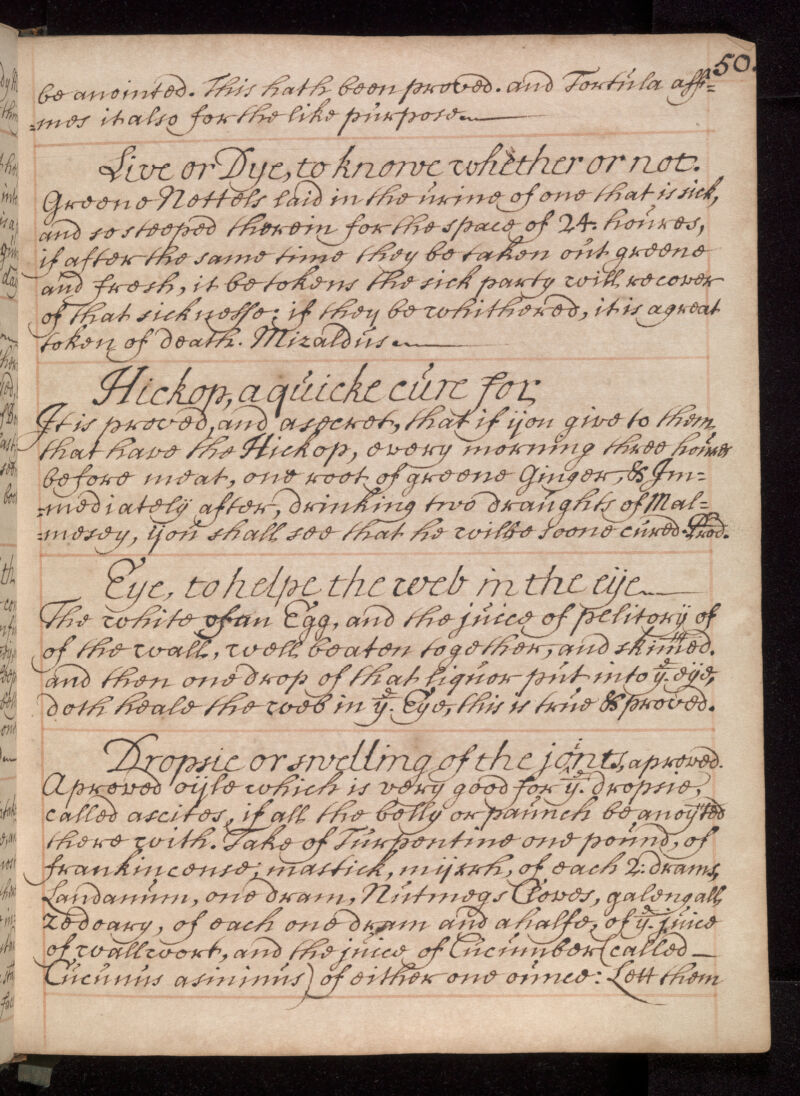 50.
be anointed. This hath been proved. and Tortula affir=
=mes it also for the like purpose
Live or Dye, to knowe whether or not.
Greene Nettels laid in the urine of one that is sick,
and so steeped therein for the space of 24: houres,
if after the same time they be taken out greene
and fresh, it betokens the sick party will recover
of that sicknesse: if they be whithered, it is a great
token of death. Mizaldus
Hickop, a quicke cure for
It is proved, and a secret, that if you give to them
that have the Hickop, every morning three houres
before meat, one root of greene Ginger, & Im=
=mediately after, drinking two draughts of Mal=
=mesey, you shall see that he wilbe soone cured. Prod.
Eye, to helpe the web in the eye
The white of an Egg, and the juice of pelitory of
of the wall, well beaten together, and skimed.
and then one drop of that liquor put into ye. eye,
doth heale the web in ye. Eye, this is true & proved.
Dropsie or swelling of the joints, aproved.
Aproved oyle which is very good for ye. dropsie,
called ascites, if all the belly or paunch be anoyted
there with. Take of Turpentine one pound, of
frankincense, mastick, myrrh, of each 2: drams,
Landanum, one dram, Nutmegs Cloves, galengall,
zedoary, of each one dram and a halfe, of ye. juice
of wallwort, and the juice of Cucumber (called
Cucunus asininus) of either one ounce: Lett them